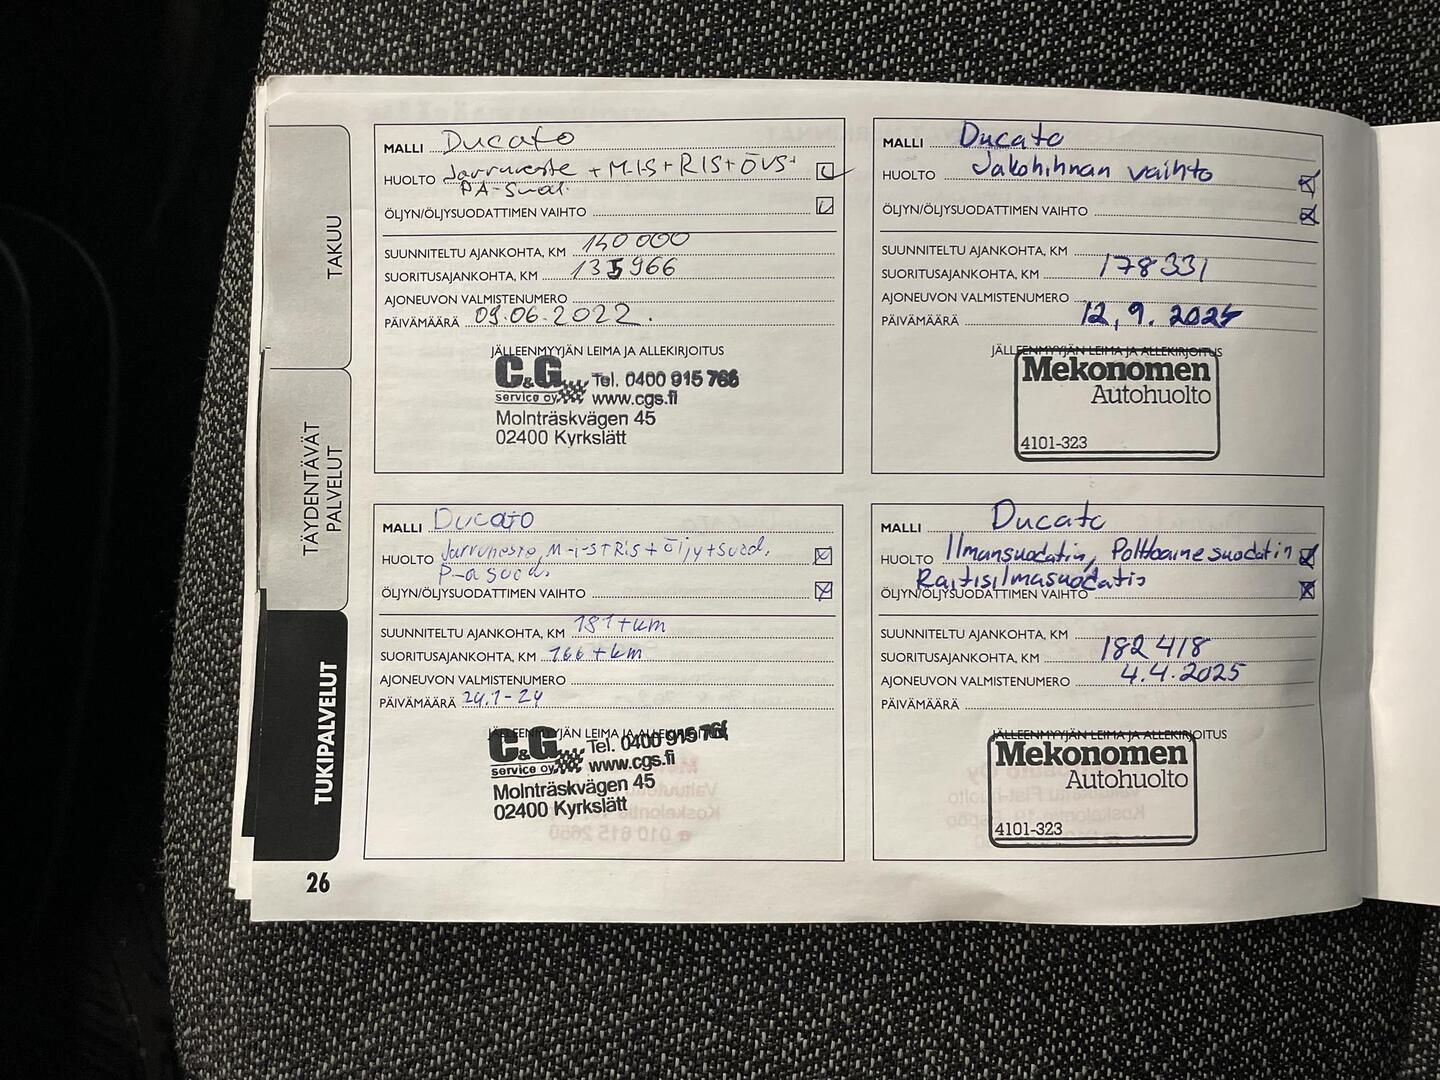 TAKUU
TÄYDENTÄVÄT
PALVELUT
TUKIPALVELUT
MALLI Ducato
HUOLTO Jarruneste + M-I-S + RIS + ÖVS+
PA-Suod.
ÖLJYN/ÖLJYSUODATTIMEN VAIHTO
SUUNNITELTU AJANKOHTA, KM 140 000
SUORITUSAJANKOHTA, KM 135966
AJONEUVON VALMISTENUMERO
PÄIVÄMÄÄRÄ 09.06.2022.
JÄLLEENMYYJÄN LEIMA JA ALLEKIRJOITUS
C&G Tel. 0400 915 766
service oy www.cgs.fi
Molnträskvägen 45
02400 Kyrkslätt
MALLI Ducato
HUOLTO Jakohihnan vaihto
ÖLJYN/ÖLJYSUODATTIMEN VAIHTO
SUUNNITELTU AJANKOHTA, KM
SUORITUSAJANKOHTA, KM 178331
AJONEUVON VALMISTENUMERO
PÄIVÄMÄÄRÄ 12.9.2024
JÄLLEENMYYJÄN LEIMA JA ALLEKIRJOITUS
Mekonomen
Autohuolto
4101-323
MALLI Ducato
HUOLTO Jarruneste, M-i-S+RiS+Öljy+suod,
P-a suod.
ÖLJYN/ÖLJYSUODATTIMEN VAIHTO
SUUNNITELTU AJANKOHTA, KM 181+km
SUORITUSAJANKOHTA, KM 166+km
AJONEUVON VALMISTENUMERO
PÄIVÄMÄÄRÄ 24.1-24
JÄLLEENMYYJÄN LEIMA JA ALLEKIRJOITUS
C&G Tel. 0400 915 766
service oy www.cgs.fi
Molnträskvägen 45
02400 Kyrkslätt
MALLI Ducato
HUOLTO Ilmansuodatin, Polttoainesuodatin
Raitisilmasuodatin
ÖLJYN/ÖLJYSUODATTIMEN VAIHTO
SUUNNITELTU AJANKOHTA, KM
SUORITUSAJANKOHTA, KM 182 418
AJONEUVON VALMISTENUMERO 4.4.2025
PÄIVÄMÄÄRÄ
JÄLLEENMYYJÄN LEIMA JA ALLEKIRJOITUS
Mekonomen
Autohuolto
4101-323
26